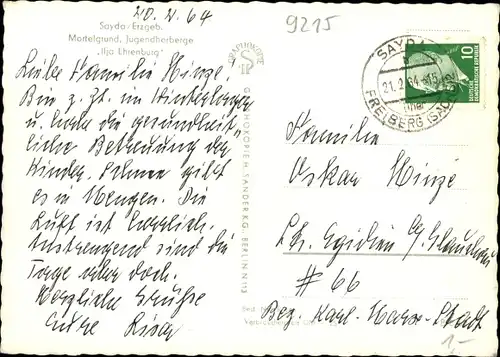 20. II. 64
9215
Sayda/Erzgeb.
Mortelgrund, Jugendherberge
„Ilja Ehrenburg"
Liebe Familie Hinze!
Bin z. Zt. im Winterlager
u. habe die gesundheit-
liche Betreuung der
Kinder. Schnee gibt
es in Mengen. Die
Luft ist herrlich.
Anstrengend sind die
Tage aber doch.
Herzliche Grüße
Eure Lisa
GRAPHOKOPIE
GRAPHOKOPIE H. SANDER KG. BERLIN N 113
SAYDA
21.2.64-15
FREIBERG (SACHS)
10
DEUTSCHE DEMOKRATISCHE REPUBLIK
Familie
Oskar Hinze
St. Egidien b/Glauchau
# 66
Bez. Karl-Marx-Stadt
Best.
1,-